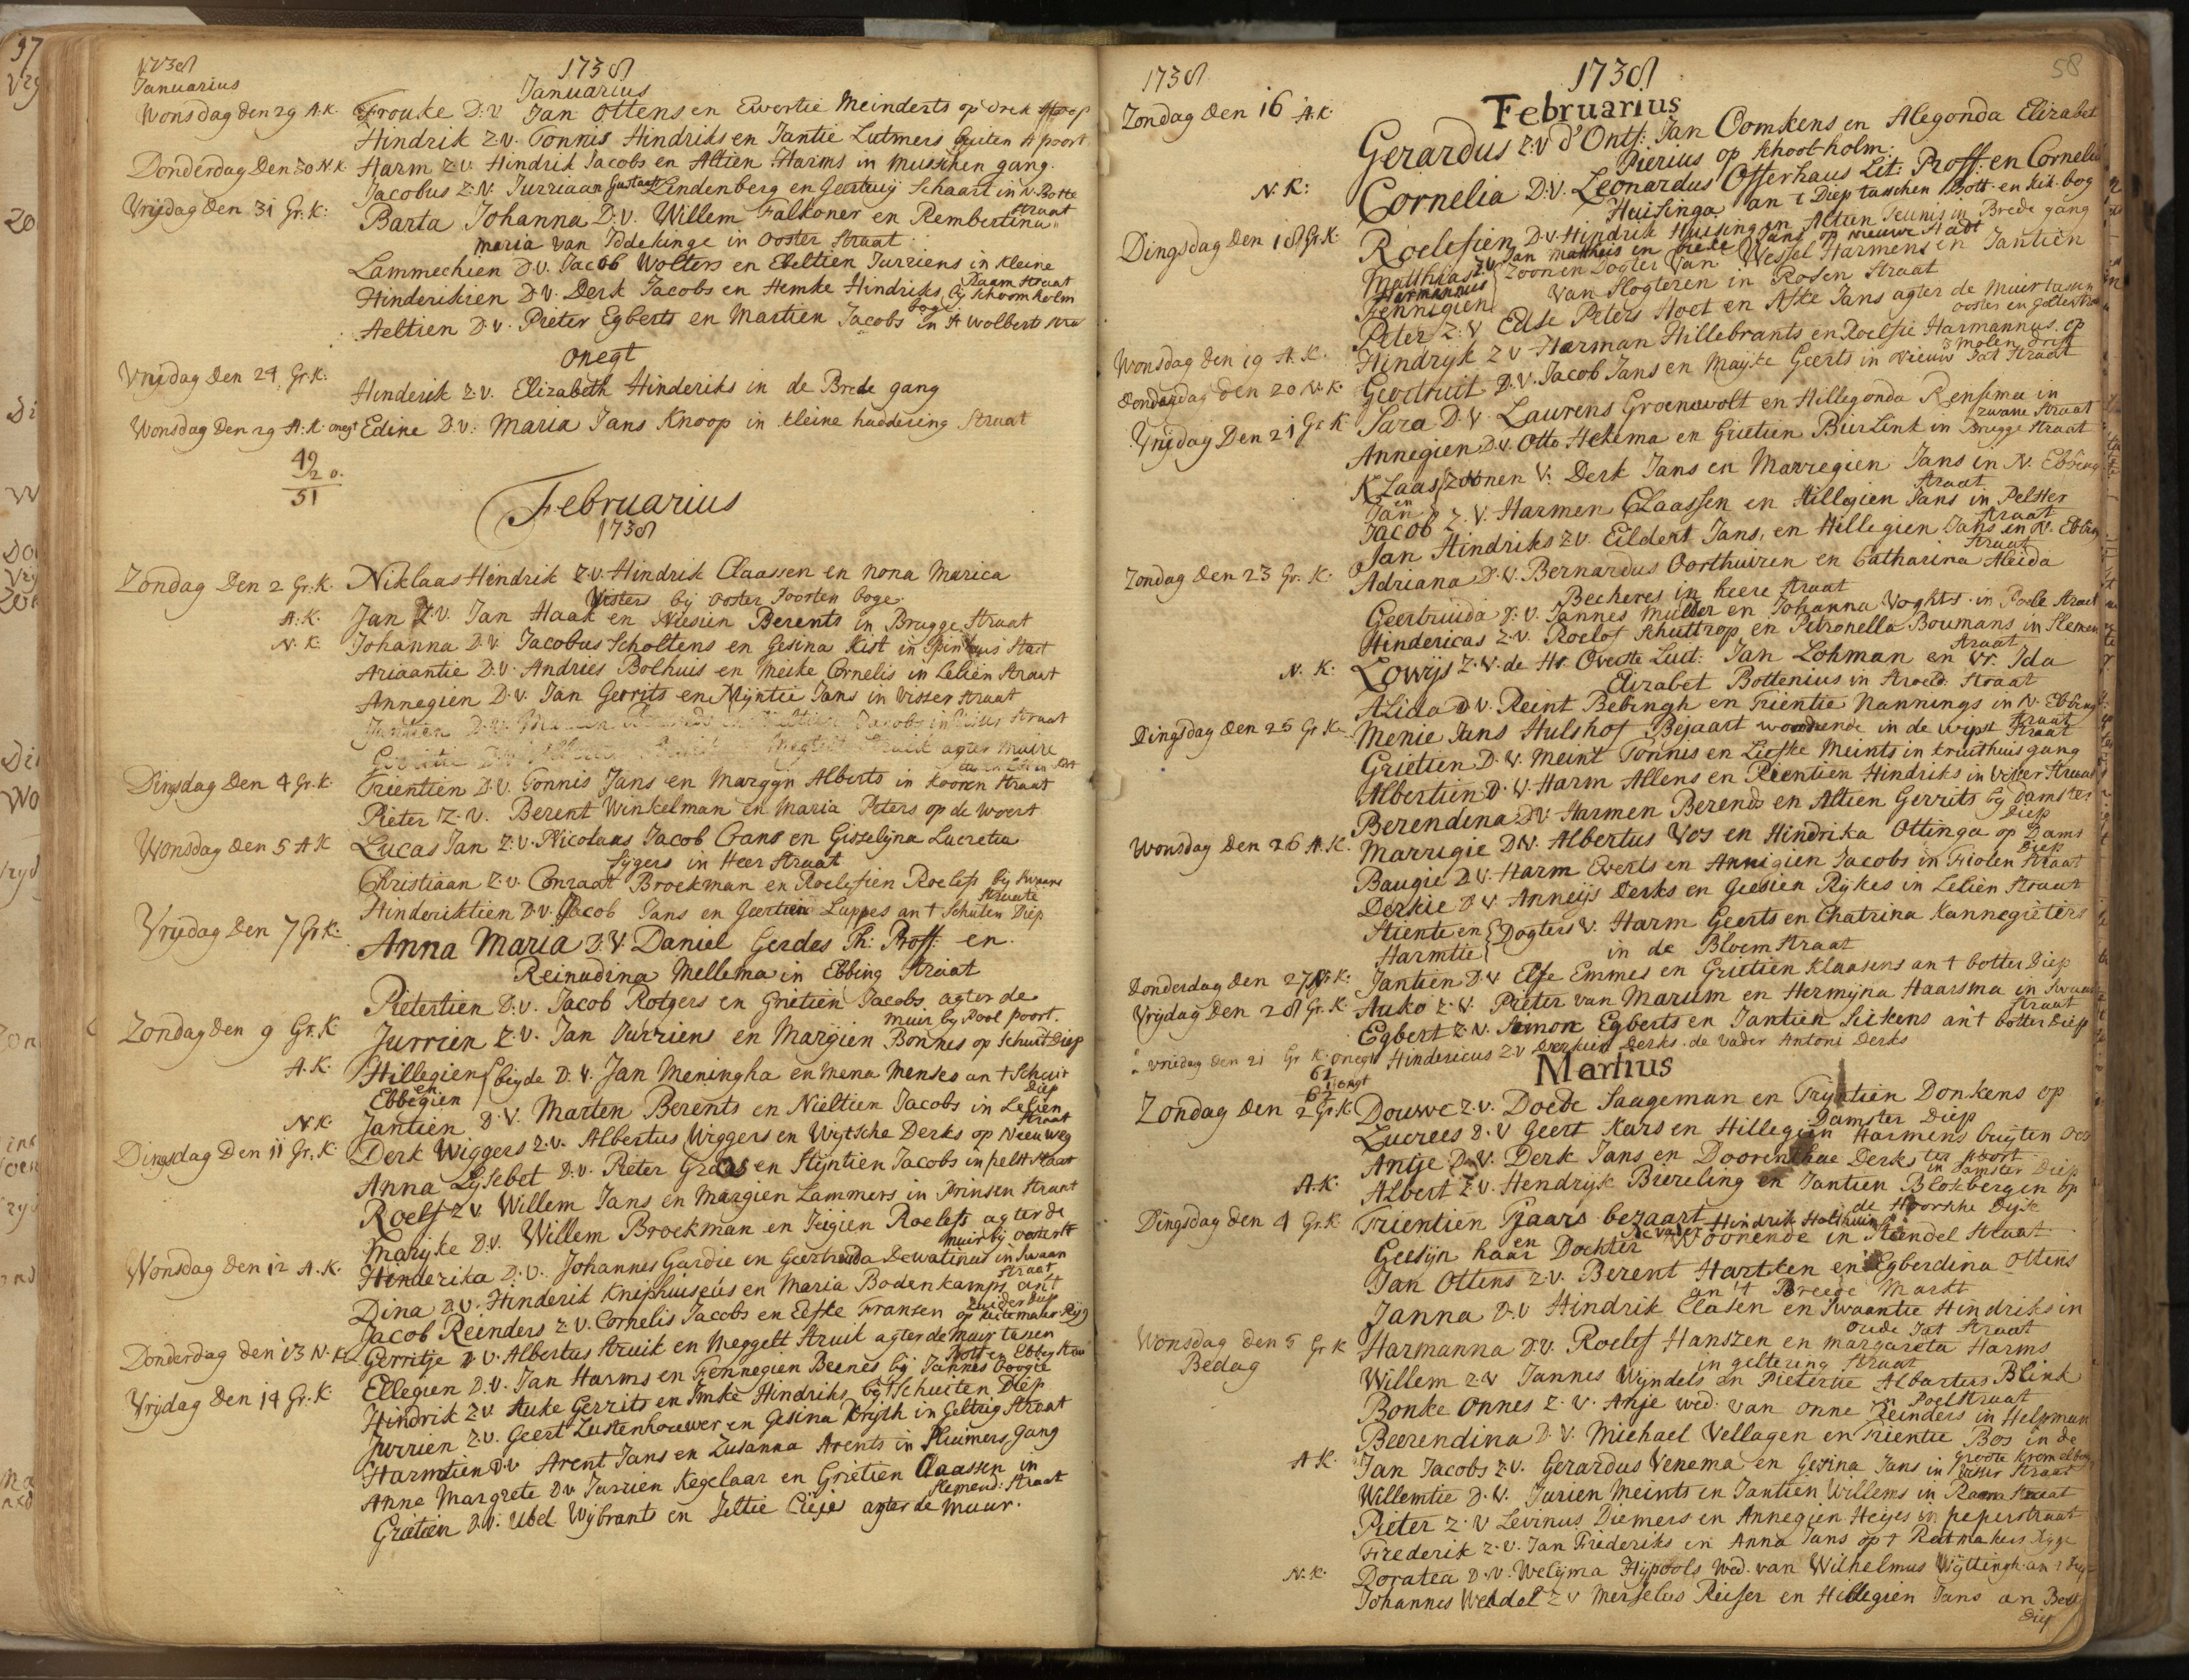 1738
Januarius
1738
Januarius
Wonsdag den 29 A.K. Frouke D.V. Jan Ottens en Ewertie Meinderts op drek hoop
Hindrik Z.V. Tonnis Hindriks en Jantie Lutmers buiten A poort
Donderdag Den 30 N.K. Harm Z.V. Hindrik Jacobs en Altien Harms in Musschen gang.
Jacobus Z.V. Jurriaan Gustaaf Lindenberg en Geertuij Schaart in N. Botte
straat
Vrijdag den 31 Gr. K: Barta Johanna D.V. Willem Falkoner en Rembertina
maria van Iddekinge in Ooster Straat
Lammechien D.V. Jacob Wolters en Ebeltien Jurriens in kleine
Raam straat
Hinderikien D.V. Derk Jacobs en Hemke Hindriks bij schoomholm
boge
Aeltien D.V. Pieter Egberts en Martien Jacobs in St Wolberts stra
onegt
Vrijdag den 24 Gr. K: Hinderik Z.V. Elizabeth Hinderiks in de Brede gang
Wonsdag Den 29 A.K. onegt Edine D.V. Maria Jans Knoop in kleine haddering Straat
49
2 o.
51
Februarius
1738
Zondag Den 2 Gr. K. Niklaas Hendrik Z.V. Hindrik Claassen en Nona Marica
Visters bij ooster Poorten boge
A.K. Jan Z.V. Jan Haak en Niesien Berents in Brugge Straat
N.K. Johanna D.V. Jacobus Scholtens en Gesina Kist in Spinhuis Staat
Ariaantie D.V. Andries Bolhuis en Meike Cornelis in Lelien straat
Annegien D.V. Jan Gerrits en Mijntie Jans in Visser straat
Jantien D.V. Marten Jacobs in straat
agter muire
Dingsdag den 4 Gr. K. Trientien D.V. Tonnis Jans en Margyn Alberts in Kooren Straat
Pieter Z.V. Berent Winkelman en Maria Peters op de Woert
Wonsdag den 5 A K Lucas Jan Z.V. Nicolaas Jacob Crans en Gisselijna Lucretia
Sijgers in Heer straat
Christiaan Z.V. Conraat Broekman en Roelefien Roelefs bij Swaane
straate
Hinderiktien D.V. Jacob Jans en Geertien Luppes an t Schuten Diep
Vrijdag den 7 Gr K: Anna Maria D.V. Daniel Gerdes Th: Proff: en
Reinudina Mellema in Ebbing straat
Pietertien D.V. Jacob Rotgers en Grietien Jacobs agter de
muir bij Poole poort.
Zondag den 9 Gr. K Jurrien Z.V. Jan Jurriens en Margien Bonnes op Schuit Diep
A.K. Hillegien en Ebbegien beyde D.V. Jan Meningha en Mena Menses an t Schuit
Diep
N.K. Jantien D.V. Marten Berents en Nieltien Jacobs in Lelien
straat
Dingsdag Den 11 Gr. K. Derk Wiggers Z.V. Albertus Wiggers en Wijtsche Derks op Neeu weg
Anna Lijsebet D.V. Pieter Graas en Stijntien Jacobs in pelst Staat
Roelf Z V Willem Jans en Margien Lammers in Prinsen straat
Marijke D.V. Willem Broekman en Jeigien Roelefs agter de
muir bij oosterst
Wonsdag Den 12 A.K. Hinderika D.V. Johannes Gardie en Geertruida Dewatinus in Swaan
straat
Dina D.V. Hinderik Kniphuiseus en Maria Bodenkamps an't
Zuider diep
Jacob Reinders Z.V. Cornelis Jacobs en Eefke Fransen op Ruitemaker Rijg
Donderdag den 13 N.K. Gerritje D.V. Albertus Struik en Meggelt Struik agter de Muir tassen
Bott en Ebbeg straat
Ellegien D.V. Jan Harms en Fennegien Beenes bij Jannes Boogie
Vrijdag Den 14 Gr. K. Hindrik Z V Auke Gerrits en Imke Hindriks bij t Schuiten Diep
Jurrien Z.V. Geert Lustenhouwer en Gesina Krijth in Gelting straat
Harmtien D.V Arent Jans en Zusanna Arents in Pluimers gang
Anne Margrete D V Jurrien Kegelaar en Grietien Claassen in
Slemend: straat
Grietien D.V. Ubel Wijbrants en Jeltie Cieje agter de muur.
58
1738
1738
Februarius
Zondag den 16 A.K. Gerardus Z.V d'Ontf: Jan Oomkens en Alegonda Elizabet
Pierius op schoolholm.
N.K: Cornelia D.V. Leonardus Offerhaus Lit: Proff: en Cornelia
Huisinga an t Diep tasschen Bott. en kik. bog
Dingsdag Den 18 Gr K Roelefien D.V. Hindrik Huising en Altien Teunis in Brede gang
Matthias Z V Jan Matthais en Jans op nieuwe stadt
Harmannus Fennigien Zoon en Dogter Van Wessel Harmens en Jantien
van Slogteren in Rosen straat
Peter Z.V Edse Peters Hoet en Afke Jans agter de Muir tasen
ooster en
Wonsdag den 19 A.K. Hindryk Z V Harman Hillebrants en Roelfie Harmannus op
3 molen drift
dondagdag den 20 N.K. Geertruit D.V. Jacob Jans en Mayke Geerts in Nieuw Jat straat
Vrijdag Den 21 Gr K Sara D.V. Laurens Groenewolt en Hillegonda Rensema in
zwane straat
Annegien D.V. Otto Hekema en Grietien Bierlink in Brugge straat
Klaas en Jan Zoonen V. Derk Jans en Marregien Jans in N. Ebbing
straat
Jacob Z.V. Harmen Claassen en Hillegien Jans in Pelster
straat
Jan Hindriks Z.V. Eildert Jans, en Hillegien Jans in N. Ebbing
straat
Zondag Den 23 Gr. K. Adriana D.V. Bernardus Oorthuizen en Catharina Aleida
Becheres in heere straat
Geertruida D.V. Jannes Mulder en Johanna Voghts in Poele straet
Hindericas Z.V. Roelof Schuttrop en Petronella Boumans in Slemen
straat
N.K: Lowijs Z.V. de Hr Overste Luit: Jan Lohman en Vr. Ida
Elizabet Bottenius in Haeld. straat
Alida D.V. Reint Bebingh en Trientie Nannings in N. Ebbing
straat
Dingsdag den 25 Gr K Menie Jans Hulshof Bejaart woonende in de wipst straat
Grietien D.V. Meint Tonnis en Liefke Meints in kruithuis gang
Albertien D.V. Harm Allens en Rientien Hindriks in Visser straat
Berendina D.V. Harmen Berends en Altien Gerrits bij Damster
Diep
Wonsdag Den 26 A.K. Marrigie D.V. Albertus Vos en Hindrika Ottinga op Dams
Diep
Baugie D.V. Harm Everts en Annigien Jacobs in Fiolen straat
Derkie D V Anneijs Derks en Geesien Rijkes in Lelien straat
Stiente en Harmtie Dogters V. Harm Geerts en Chatrina Kannegieters
in de Bloem straat
Donderdag den 27 N.K. Jantien D.V Elfe Emmes en Grietien Klaasens an t botter Diep
Vrijdag Den 28 Gr. K. Auko Z.V. Pieter van Marum en Hermijna Haarsma in Swaan
straat
Egbert Z.V. Simon Egberts en Jantien Sickens an't botter Diep
vriedag den 21 Gr K onegt Hindericus Z V Derkien Derks de vader Antoni Derks
61
1 onegt
62
Martius
Zondag den 2 Gr. K. Douwe Z.V. Doede Saageman en Trijntien Donkens op
Damster Diep
Lucrees D.V Geert Kars en Hillegien Harmens buijten
ter poort
Antje D.V. Derk Jans en Doorenthae Derks in Damster Diep
A.K. Albert Z.V. Hendryk Biereling en Jantien Blokbergen op
de Hoorsche Dijk
Dingsdag den 4 Gr. K Trientien Tjaars bejaart
De vader Hindrik Holthuis
Geesijn haar en Dochter Woonende in Steendel straat
Jan Ottens Z.V. Berent Hartken en Egberdina Ottens
an 't Breede Markt
Janna D.V Hindrik Clasen en Swaantie Hindriks in
oude Jat straat
Wonsdag den 5 Gr K Harmanna D.V. Roelef Hanszen en Margareta Harms
Bedag
in geltering straat
Willem Z.V Jannes Wijndels en Pietertie Albartus Blink
in Poelstraat
Bonke Onnes Z.V. Anje wed: van Onne Reinders in Helpman
Beerendina D.V. Michael Vellagen en Trientie Bos in de
Groote Kromelbog
A.K. Jan Jacobs Z.V. Gerardus Venema en Gesina Jans in Visser straat
Willemtie D.V. Jurien Meints en Jantien Willems in Raam straat
Pieter Z.V Levinus Diemers en Annegien Heijes in peperstraat
Frederik Z.V. Jan Frideriks en Anna Jans op t Ratmakers Rijge
N.K. Doratea D.V. Welijma Hijpools Wed. van Wilhelmus Wijttingh an t
Johannes Wendel Z V Merselus Reiser en Hillegien Jans an Bott
diep